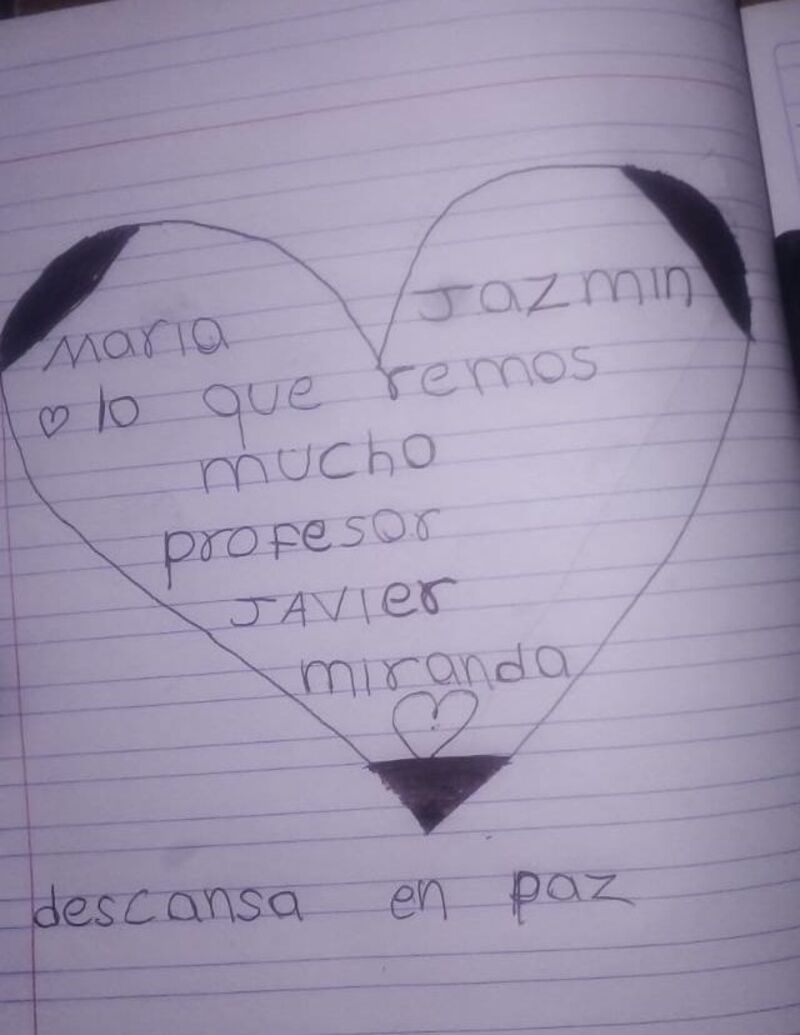 Maria Jazmin
♡ lo que remos
mucho
profesor
JAVIer
miranda
descansa en paz